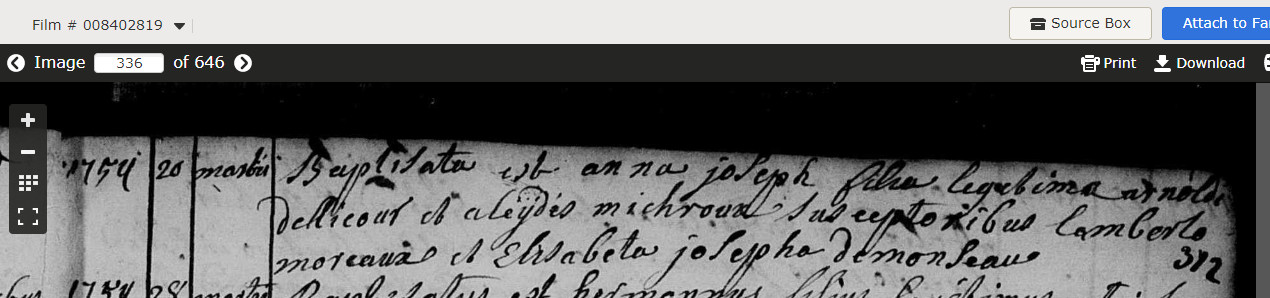 Film # 008402819
Source Box
Attach to Fa
Image 336 of 646
Print
Download
1754 20 martii Baptisata est anna joseph filia legitima arnoldi
dellicour et aleydis michroux susceptoribus lamberto
moreaux et Elisabeta josepha demonseau
312
1754 28 Baptisatus est hermannus filius legitimus